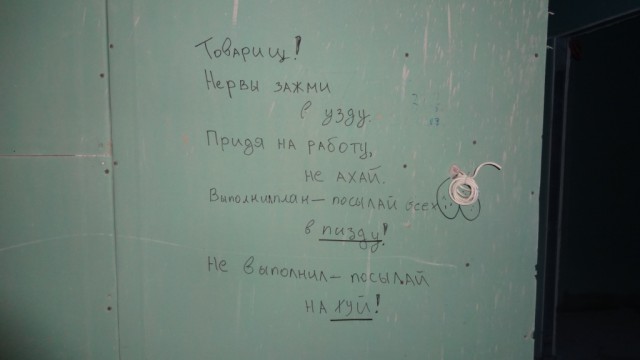 Товарищ!
Нервы зажми
в узду.
Придя на работу,
не ахай.
Выполнилплан — посылай всех
в пизду!
Не выполнил — посылай
на хуй!